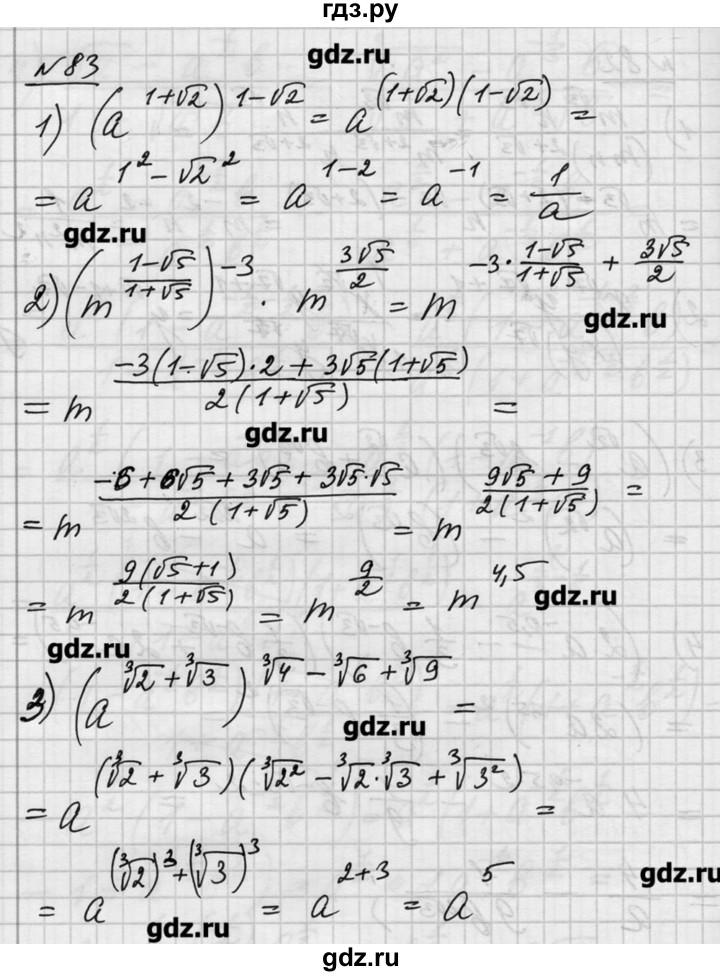 гдз.ру
gdz.ru
№ 83
1) (a^(1+√2))^(1−√2) = a^((1+√2)(1−√2)) =
= a^(1²−√2²) = a^(1−2) = a^(−1) = 1/a
gdz.ru
2) (m^((1−√5)/(1+√5)))^(−3) · m^(3√5/2) = m^(−3·(1−√5)/(1+√5) + 3√5/2)
gdz.ru
= m^((−3(1−√5)·2 + 3√5(1+√5))/(2(1+√5))) =
gdz.ru
= m^((−6+6√5+3√5+3√5·√5)/(2(1+√5))) = m^((9√5+9)/(2(1+√5))) =
= m^(9(√5+1)/(2(1+√5))) = m^(9/2) = m^(4,5)
gdz.ru
gdz.ru
3) (a^(∛2+∛3))^(∛4−∛6+∛9) =
gdz.ru
= a^((∛2+∛3)(∛2²−∛2·∛3+∛3²)) =
= a^((∛2)³+(∛3)³) = a^(2+3) = a^5
gdz.ru
gdz.ru
gdz.ru